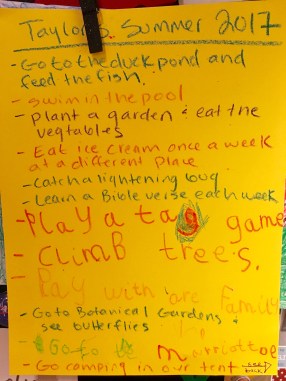 Taylors. Summer 2017
- Go to the duck pond and
feed the fish.
- swim in the pool
- plant a garden & eat the
vegtables
- Eat Ice Cream once a week
at a different place
- Catch a lightening bug
- Learn a Bible verse each week
- Play a tag game
- CLIMB trees.
- Play with are Family
- Go to Botanical Gardens &
see butterflies
- Go to the marriottoe
- Go camping in our tent see
back